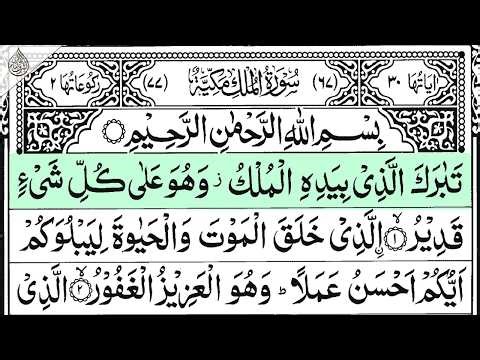 اٰيَاتُهَا ٣٠ (٦٧) سُوْرَةُ الْمُلْكِ مَكِّيَّةٌ (٧٧) رُكُوْعَاتُهَا ٢
بِسْمِ اللّٰهِ الرَّحْمٰنِ الرَّحِيْمِ
تَبٰرَكَ الَّذِىْ بِيَدِهِ الْمُلْكُ ز وَهُوَ عَلٰى كُلِّ شَىْءٍ
قَدِيْرُ ۙ﴿١﴾ الَّذِىْ خَلَقَ الْمَوْتَ وَالْحَيٰوةَ لِيَبْلُوَكُمْ
اَيُّكُمْ اَحْسَنُ عَمَلًا ؕ وَهُوَ الْعَزِيْزُ الْغَفُوْرُ ۙ﴿٢﴾ الَّذِىْ